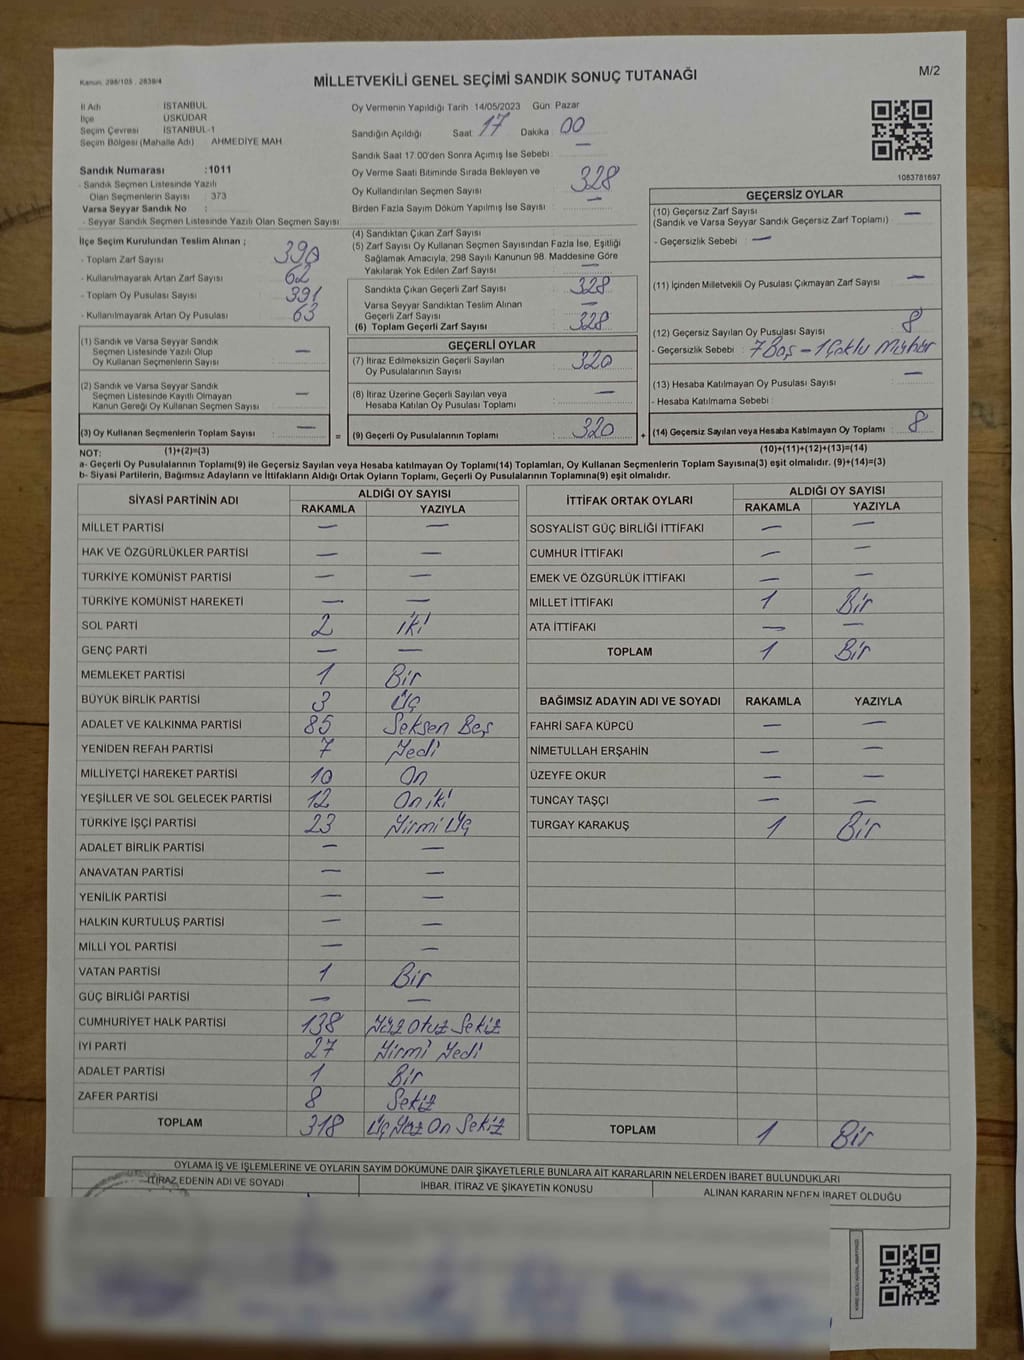 Kanun: 298/105 , 2839/4
MİLLETVEKİLİ GENEL SEÇİMİ SANDIK SONUÇ TUTANAĞI
M/2
İl Adı : İSTANBUL
İlçe : ÜSKÜDAR
Seçim Çevresi : İSTANBUL-1
Seçim Bölgesi (Mahalle Adı) : AHMEDİYE MAH
Sandık Numarası :1011
- Sandık Seçmen Listesinde Yazılı
Olan Seçmenlerin Sayısı : 373
Varsa Seyyar Sandık No :
- Seyyar Sandık Seçmen Listesinde Yazılı Olan Seçmen Sayısı :
Oy Vermenin Yapıldığı Tarih : 14/05/2023 Gün: Pazar
Sandığın Açıldığı Saat 17 Dakika 00
Sandık Saat 17.00'den Sonra Açımış İse Sebebi : —
Oy Verme Saati Bitiminde Sırada Bekleyen ve
Oy Kullandırılan Seçmen Sayısı : 328
Birden Fazla Sayım Döküm Yapılmış İse Sayısı : —
1083781697
İlçe Seçim Kurulundan Teslim Alınan ;
- Toplam Zarf Sayısı : 390
- Kullanılmayarak Artan Zarf Sayısı : 62
- Toplam Oy Pusulası Sayısı : 391
- Kullanılmayarak Artan Oy Pusulası : 63
(1) Sandık ve Varsa Seyyar Sandık
Seçmen Listesinde Yazılı Olup
Oy Kullanan Seçmenlerin Sayısı : —
(2) Sandık ve Varsa Seyyar Sandık
Seçmen Listesinde Kayıtlı Olmayan
Kanun Gereği Oy Kullanan Seçmen Sayısı : —
(3) Oy Kullanan Seçmenlerin Toplam Sayısı : —
(4) Sandıktan Çıkan Zarf Sayısı :
(5) Zarf Sayısı Oy Kullanan Seçmen Sayısından Fazla İse, Eşitliği
Sağlamak Amacıyla, 298 Sayılı Kanunun 98. Maddesine Göre
Yakılarak Yok Edilen Zarf Sayısı : —
Sandıkta Çıkan Geçerli Zarf Sayısı : 328
Varsa Seyyar Sandıktan Teslim Alınan
Geçerli Zarf Sayısı : —
(6) Toplam Geçerli Zarf Sayısı : 328
GEÇERLİ OYLAR
(7) İtiraz Edilmeksizin Geçerli Sayılan
Oy Pusulalarının Sayısı : 320
(8) İtiraz Üzerine Geçerli Sayılan veya
Hesaba Katılan Oy Pusulası Toplamı : —
= (9) Geçerli Oy Pusulalarının Toplamı : 320
GEÇERSİZ OYLAR
(10) Geçersiz Zarf Sayısı : —
(Sandık ve Varsa Seyyar Sandık Geçersiz Zarf Toplamı)
- Geçersizlik Sebebi : —
(11) İçinden Milletvekili Oy Pusulası Çıkmayan Zarf Sayısı : —
(12) Geçersiz Sayılan Oy Pusulası Sayısı : 8
- Geçersizlik Sebebi : 7 Boş - 1 Çoklu Mühür
(13) Hesaba Katılmayan Oy Pusulası Sayısı : —
- Hesaba Katılmama Sebebi :
+ (14) Geçersiz Sayılan veya Hesaba Katılmayan Oy Toplamı : 8
NOT: (1)+(2)=(3) (10)+(11)+(12)+(13)=(14)
a- Geçerli Oy Pusulalarının Toplamı(9) ile Geçersiz Sayılan veya Hesaba katılmayan Oy Toplamı(14) Toplamları, Oy Kullanan Seçmenlerin Toplam Sayısına(3) eşit olmalıdır. (9)+(14)=(3)
b- Siyasi Partilerin, Bağımsız Adayların ve İttifakların Aldığı Ortak Oyların Toplamı, Geçerli Oy Pusulalarının Toplamına(9) eşit olmalıdır.
SİYASİ PARTİNİN ADI ALDIĞI OY SAYISI
RAKAMLA YAZIYLA
MİLLET PARTİSİ — —
HAK VE ÖZGÜRLÜKLER PARTİSİ — —
TÜRKİYE KOMÜNİST PARTİSİ — —
TÜRKİYE KOMÜNİST HAREKETİ — —
SOL PARTİ 2 iki
GENÇ PARTİ — —
MEMLEKET PARTİSİ 1 Bir
BÜYÜK BİRLİK PARTİSİ 3 Üç
ADALET VE KALKINMA PARTİSİ 85 Seksen Beş
YENİDEN REFAH PARTİSİ 7 Yedi
MİLLİYETÇİ HAREKET PARTİSİ 10 On
YEŞİLLER VE SOL GELECEK PARTİSİ 12 On iki
TÜRKİYE İŞÇİ PARTİSİ 23 Yirmi Üç
ADALET BİRLİK PARTİSİ — —
ANAVATAN PARTİSİ — —
YENİLİK PARTİSİ — —
HALKIN KURTULUŞ PARTİSİ — —
MİLLİ YOL PARTİSİ — —
VATAN PARTİSİ 1 Bir
GÜÇ BİRLİĞİ PARTİSİ — —
CUMHURİYET HALK PARTİSİ 138 Yüz Otuz Sekiz
İYİ PARTİ 27 Yirmi Yedi
ADALET PARTİSİ 1 Bir
ZAFER PARTİSİ 8 Sekiz
TOPLAM 318 Üç Yüz On Sekiz
İTTİFAK ORTAK OYLARI ALDIĞI OY SAYISI
RAKAMLA YAZIYLA
SOSYALİST GÜÇ BİRLİĞİ İTTİFAKI — —
CUMHUR İTTİFAKI — —
EMEK VE ÖZGÜRLÜK İTTİFAKI — —
MİLLET İTTİFAKI 1 Bir
ATA İTTİFAKI — —
TOPLAM 1 Bir
BAĞIMSIZ ADAYIN ADI VE SOYADI RAKAMLA YAZIYLA
FAHRİ SAFA KÜPCÜ — —
NİMETULLAH ERŞAHİN — —
ÜZEYFE OKUR — —
TUNCAY TAŞÇI — —
TURGAY KARAKUŞ 1 Bir
TOPLAM 1 Bir
OYLAMA İŞ VE İŞLEMLERİNE VE OYLARIN SAYIM DÖKÜMÜNE DAİR ŞİKAYETLERLE BUNLARA AİT KARARLARIN NELERDEN İBARET BULUNDUKLARI
İTİRAZ EDENİN ADI VE SOYADI İHBAR, İTİRAZ VE ŞİKAYETİN KONUSU ALINAN KARARIN NEDEN İBARET OLDUĞU